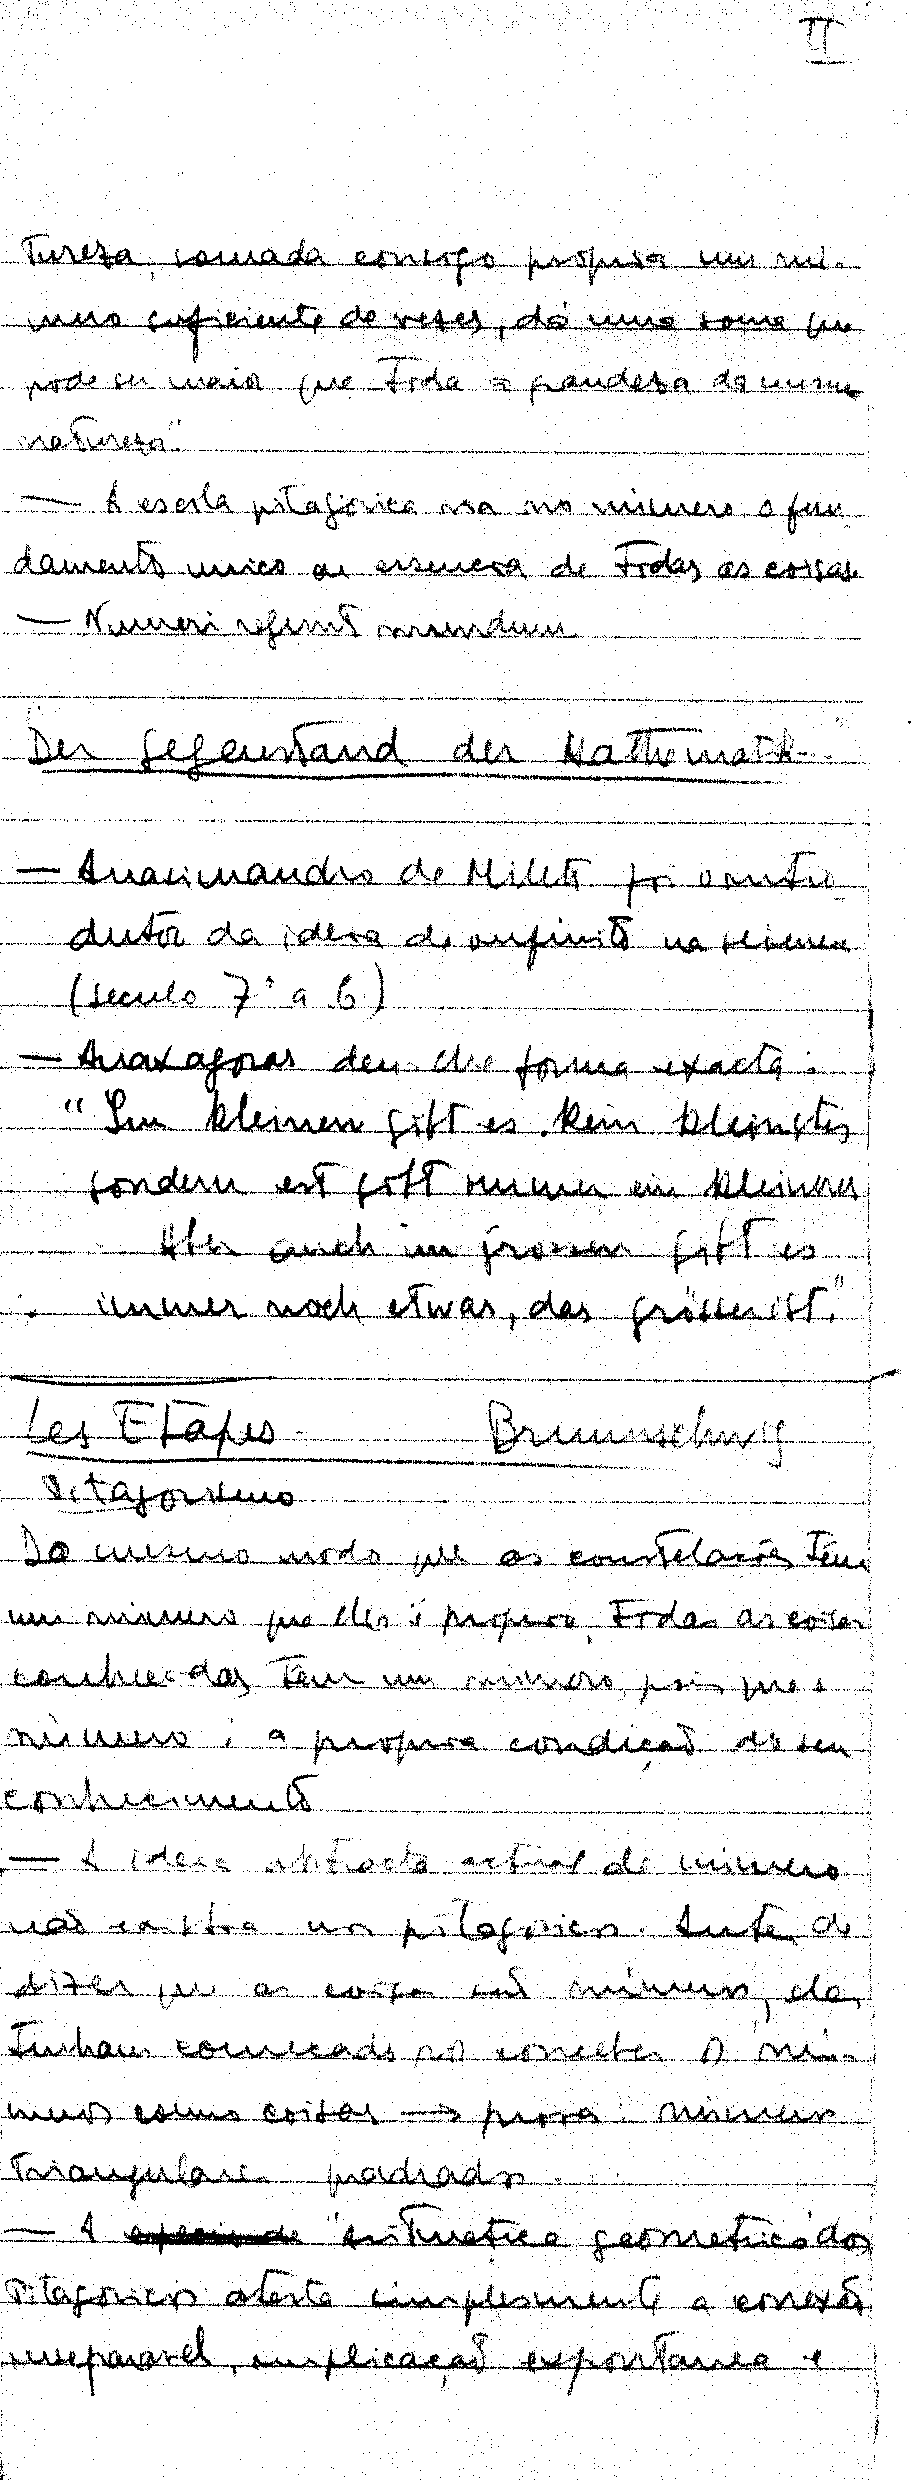 II
tureza, somada consigo propria um nu-
mero suficiente de vezes, dá uma soma que
pode ser maior que toda a grandeza da mesma
natureza".
— A escola pitagórica via no número o fun
damento unico ou essencia de todas as coisas
— Numeri regunt mundum
Der Gegenstand der Mathematik
— Anaximandro de Mileto foi o intro
dutor da ideia do infinito na sciencia
(seculo 7º a 6º)
— Anaxagoras deu-lhe forma exacta:
"Im kleinen gibt es kein kleinstes
sondern est gibt immer ein kleineres
Aber auch im grossen gibt es
immer noch etwas, das grösser ist."
Les Etapes Brunnschwig
Pitagorismo
Do mesmo modo que as constelações têm
um número que lhes é proprio, todas as coisas
conhecidas têm um número, pois que o
número é a propria condição do seu
conhecimento
— A ideia abstracta actual de número
não existia nos pitagóricos. Antes de
dizer que as coisas são números, eles
tinham começado por conceber os nú-
meros como coisas → prova: números
triangulares quadrados.
— A "aritmetica geometrica" dos
Pitagoricos atesta simplesmente a conexão
inseparavel, implicação espontanea e